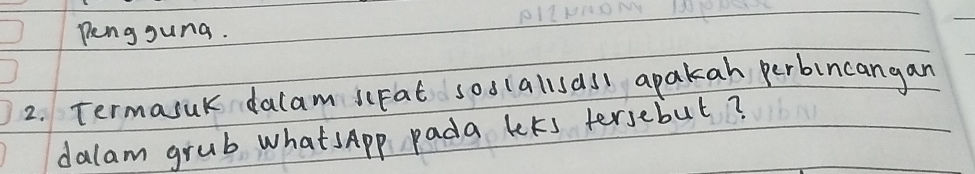 Pengguna.
2. Termasuk dalam sifat sosialisasi apakah perbincangan
dalam grub WhatsApp pada teks tersebut?